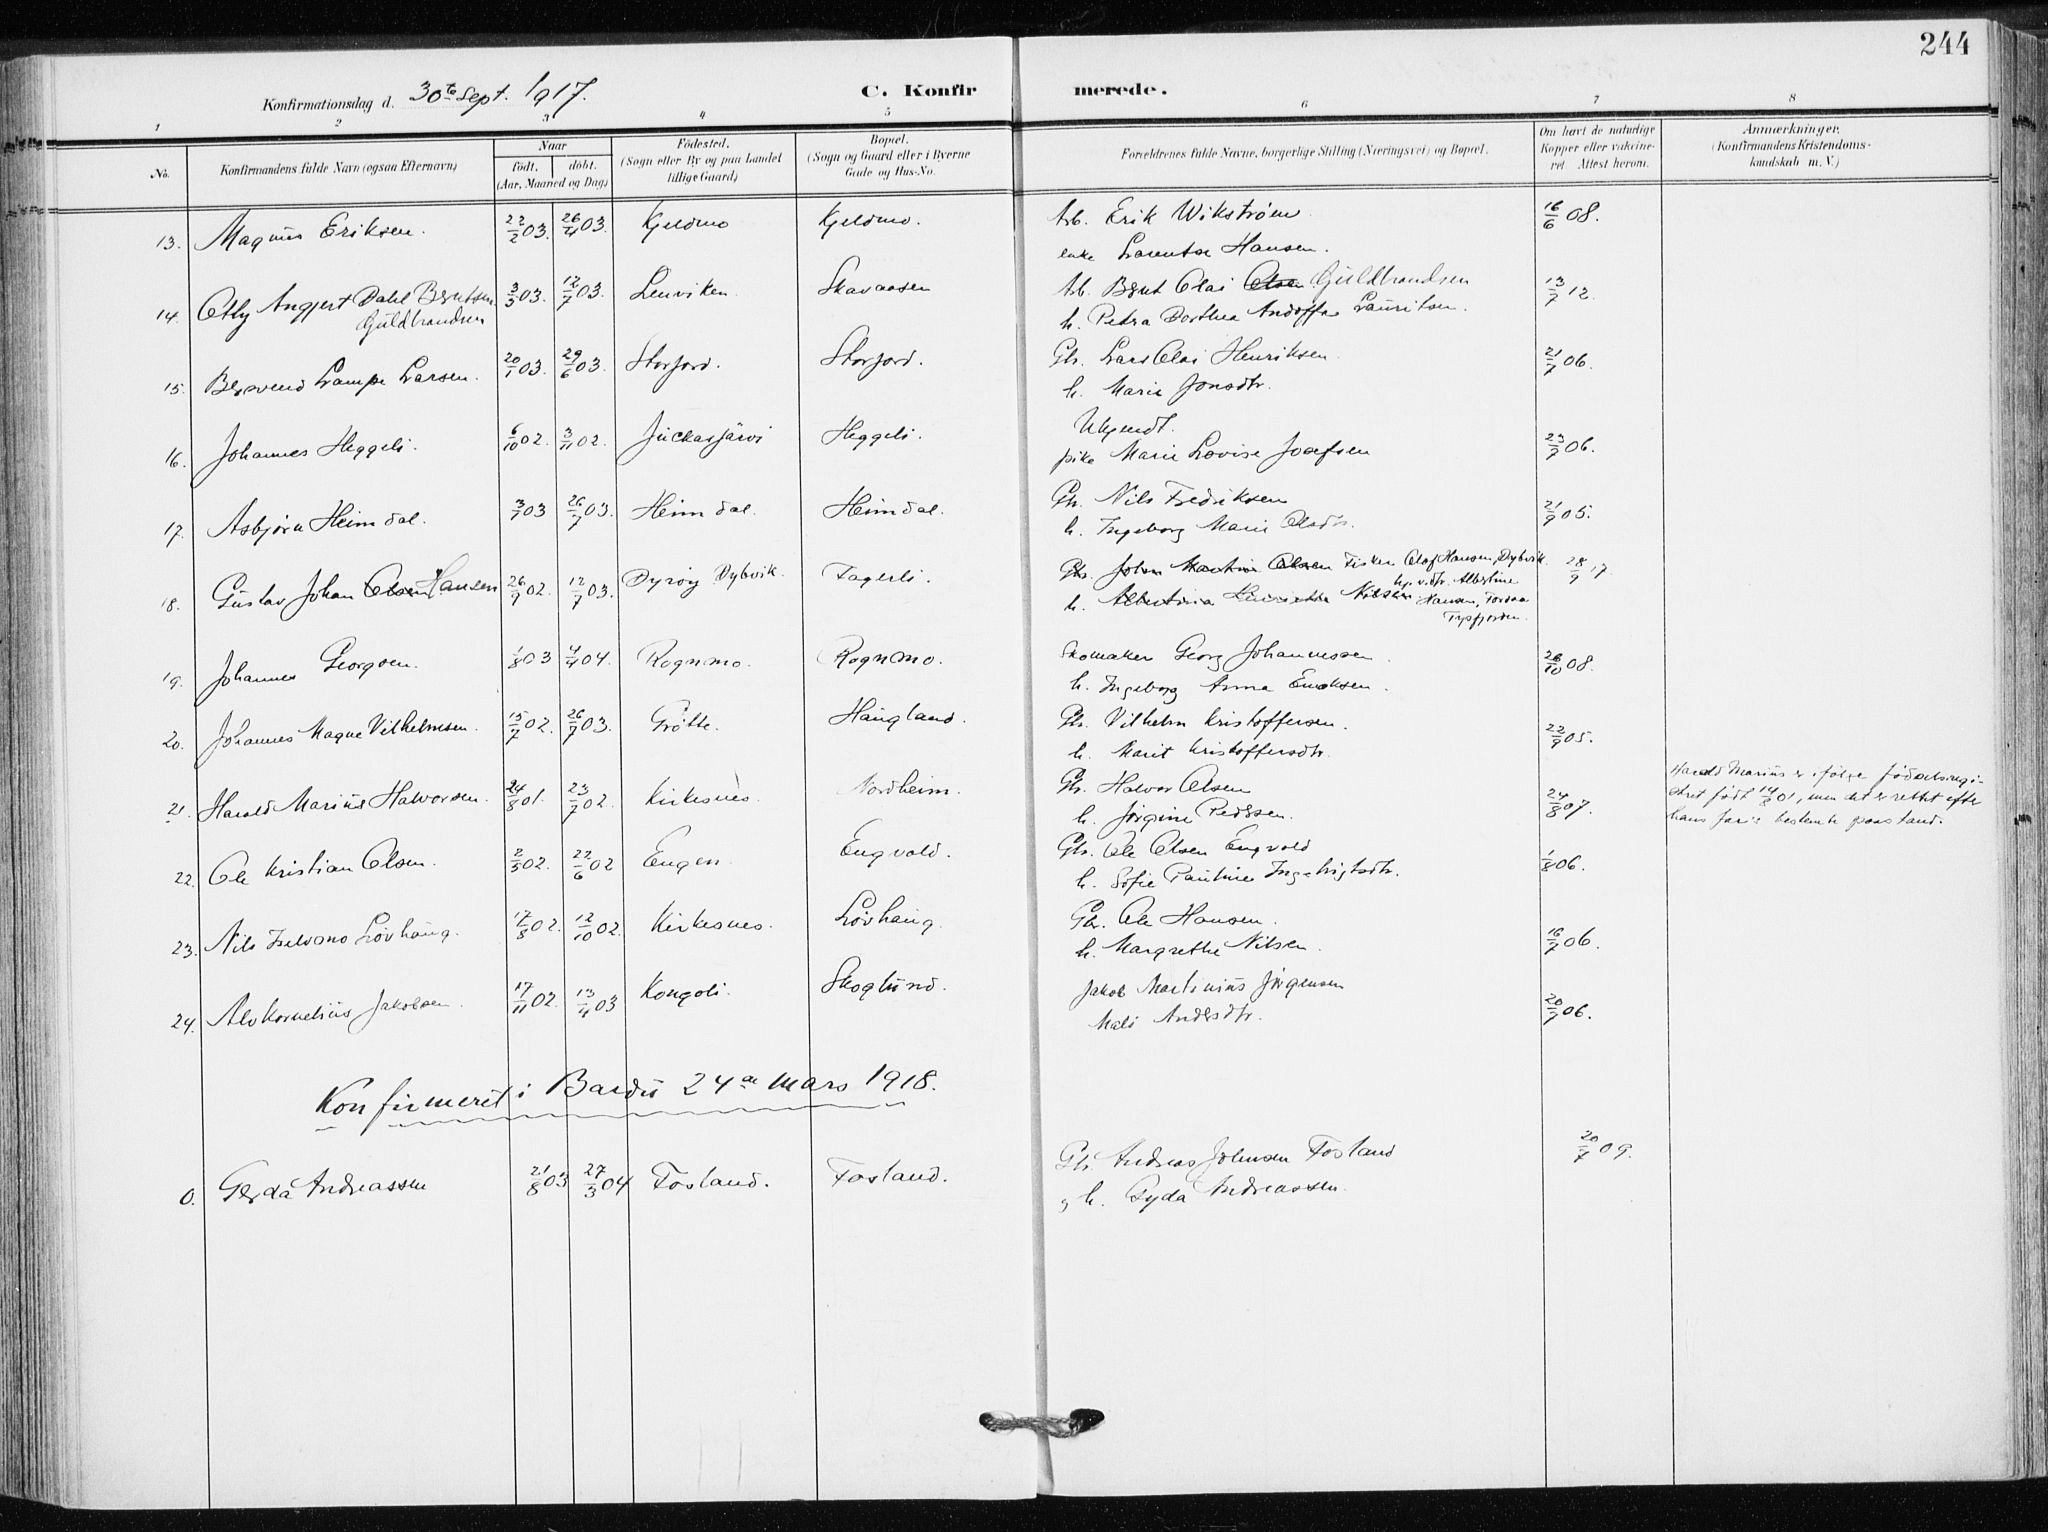 244
Konfirmationsdag d. 30te Sept. 1917.
C. Konfirmerede.
1 2 3 4 5 6 7 8
No. Konfirmandens fulde Navn (ogsaa Efternavn) Naar født. døbt. (Aar, Maaned og Dag) Fødested. (Sogn eller By og paa Landet tillige Gaard) Bopæl. (Sogn og Gaard eller i Byerne Gade og Hus-No. Forældrenes fulde Navne, borgerlige Stilling (Næringsvei) og Bopæl. Om havt de naturlige Kopper eller vakcineret Attest herom. Anmærkninger. (Konfirmandens Kristendomskundskab m. V.)
13. Magnus Eriksen. 22/2 03. 26/4 03. Kjeldmo Kjeldmo. Arb. Erik Wikstrøm 16/6 08.
enke Laurentse Hansen.
14. Otly Angjert Dahl Berntsen 3/3 03. 12/7 03. Lenviken. Skavaasen Arb. Bernt Olai Olsen Guldbrandsen 13/7 12.
Guldbrandsen h. Petra Dorthea Lauritsen.
15. Bersvend Lampe Larsen. 20/1 03. 29/6 03. Storfjord. Storfjord. Gbr. Lars Olai Henriksen. 21/7 06.
h. Marie Jonsdtr.
16. Johannes Heggeli. 6/10 02. 3/11 02. Juckasjärvi Heggeli. Ukjendt. 23/7 06.
pike Marie Lovise Josefsen
17. Asbjørn Heimdal. 3/7 03 26/7 03. Heimdal. Heimdal. Gbr. Nils Fredriksen 21/9 05.
h. Ingeborg Marie Olsdtr.
18. Gustav Johan Olsen Hansen 26/9 02. 12/7 03. Dyrøy Dybvik. Fagerli. Gbr. Johan Martin Olsen Fisker Olaf Hansen, Dybvik 28/9 17.
h. Albertina Henriette Nilsen Albertine Hansen,
Tysfjorden.
19. Johannes Georgsen. 1/8 03 4/4 04. Rognmo. Rognmo. Skomaker Georg Johannessen. 26/10 08.
h. Ingeborg Anna Enoksen.
20. Johannes Magne Vilhelmsen. 15/7 02. 26/7 03. Grøtte. Haugland. Gbr. Vilhelm Kristoffersen. 22/9 05.
h. Marit Kristoffersdtr.
21. Harald Marius Halvorsen. 24/8 01. 23/7 02. Kirkesnes. Nordheim. Gbr. Halvor Olsen 24/8 07. Harald Marius er ifølge fødselsregi-
h. Jørgine Pedersen. stret født 14/8 01, men det er rettet efter
hans far's bestemte paastand.
22. Ole Kristian Olsen. 2/5 02. 22/6 02 Engen. Engvold. Gbr. Ole Olsen Engvold 1/8 06.
h. Sofie Pauline Ingebrigtsdtr.
23. Nils Løvhaug. 17/8 02. 12/10 02. Kirkesnes. Løvhaug. Gbr. Ole Hansen. 16/7 06.
h. Margrethe Nilsen.
24. Alv Kornelius Jakobsen. 17/11 02. 13/4 03 Kongsli. Skoglund. Jakob Martinius Jørgensen 20/7 06.
Mali Andersdtr.
Konfirmeret i Bardu 24de Mars 1918.
0. Gerda Andreassen 21/8 03 27/3 04 Fosland. Fosland. Gbr. Andreas Johnsen Fosland 20/7 09.
h. Gyda Andreassen.